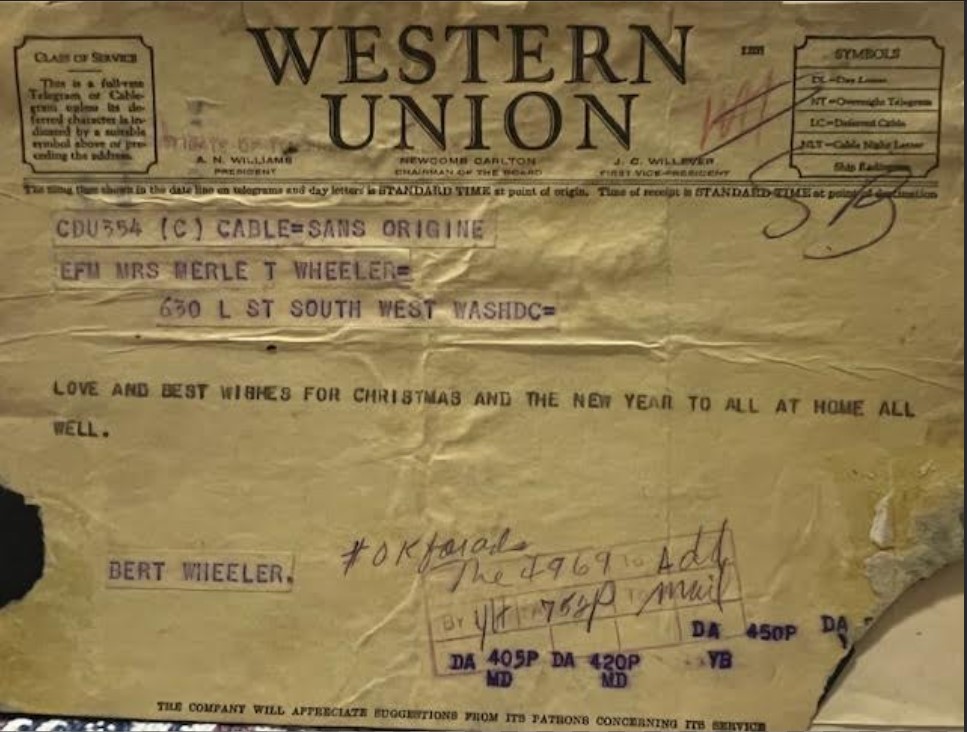 WESTERN
UNION
1201
CLASS OF SERVICE
This is a full-rate
Telegram or Cable-
gram unless its de-
ferred character is in-
dicated by a suitable
symbol above or pre-
ceding the address.
SYMBOLS
DL=Day Letter
NT=Overnight Telegram
LC=Deferred Cable
NLT=Cable Night Letter
Ship Radiogram
A. N. WILLIAMS
PRESIDENT
NEWCOMB CARLTON
CHAIRMAN OF THE BOARD
J. C. WILLEVER
FIRST VICE-PRESIDENT
The filing time shown in the date line on telegrams and day letters is STANDARD TIME at point of origin. Time of receipt is STANDARD TIME at point of destination
CDU354 (C) CABLE=SANS ORIGINE
EFM MRS MERLE T WHEELER=
630 L ST SOUTH WEST WASHDC=
LOVE AND BEST WISHES FOR CHRISTMAS AND THE NEW YEAR TO ALL AT HOME ALL
WELL.
BERT WHEELER.
#OK
The 4969 To Add
By 752p To mail
DA 450P DA
DA 405P DA 420P YB
MD MD
THE COMPANY WILL APPRECIATE SUGGESTIONS FROM ITS PATRONS CONCERNING ITS SERVICE